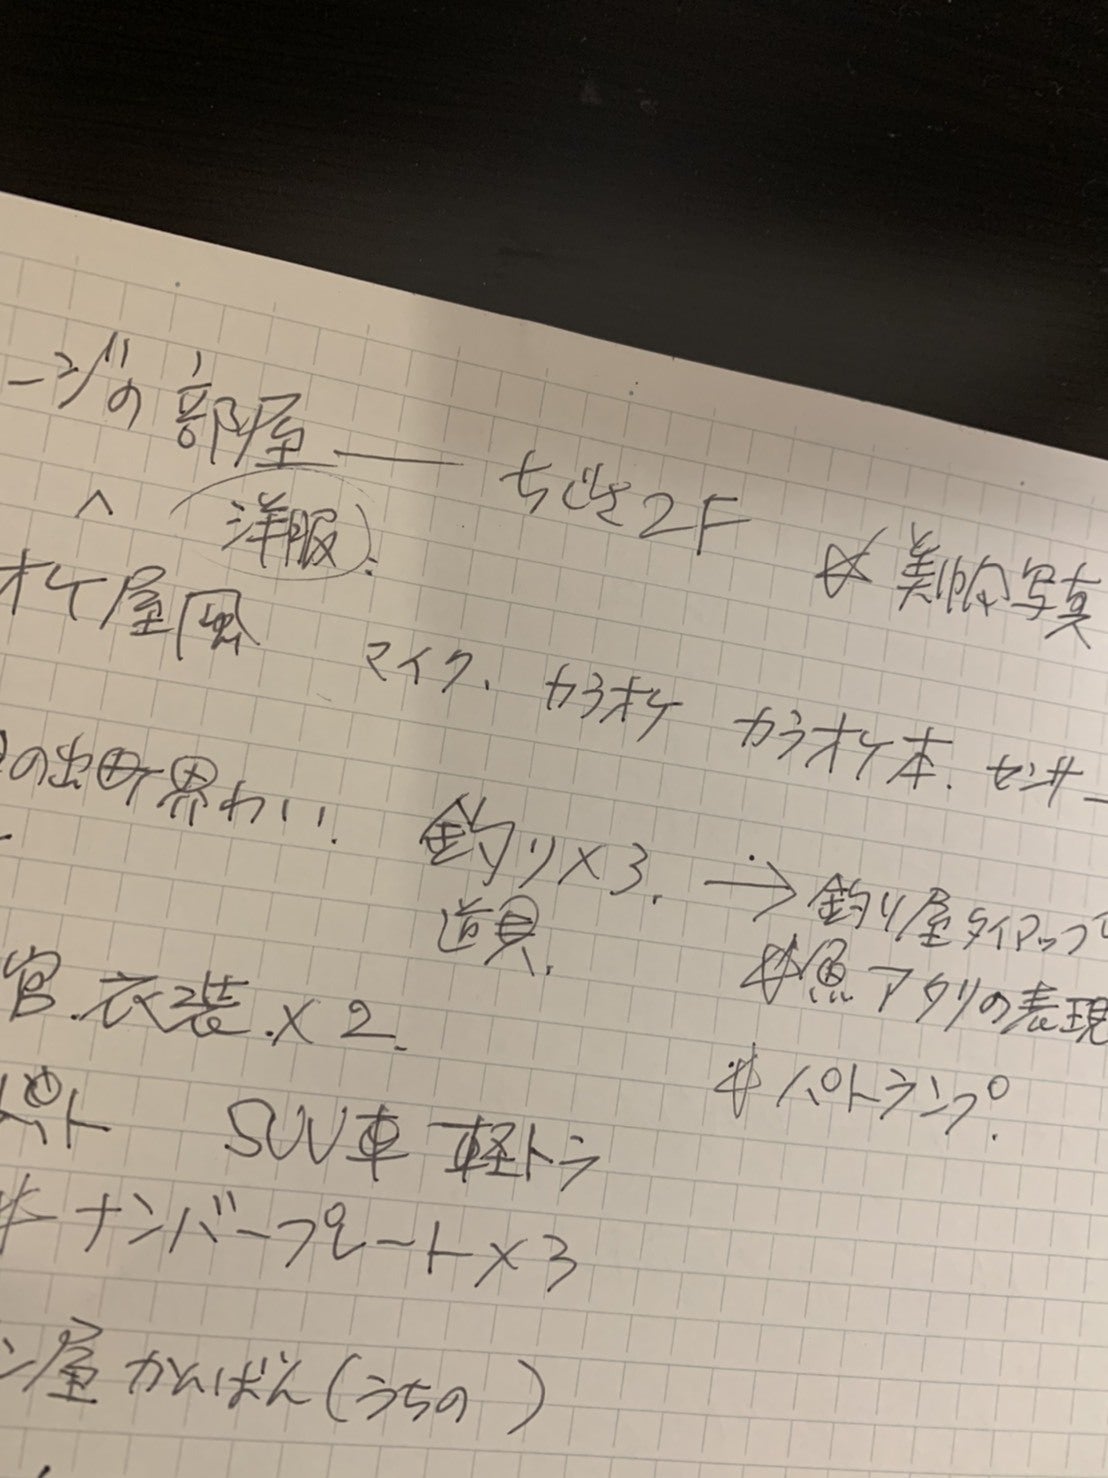 ージの部屋 ── ちぢさ2F
へ (洋服).
※美帆写真
オケ屋風 マイク、カラオケ カラオケ本、センサー
の出町界わい. 釣り×3. → 釣り屋タイアップ
道具. ※魚アタリの表現
官.衣装.×2.
※パトランプ.
パト SUV車 軽トラ
※ナンバープレート×3
ン屋 かんばん(うちの )